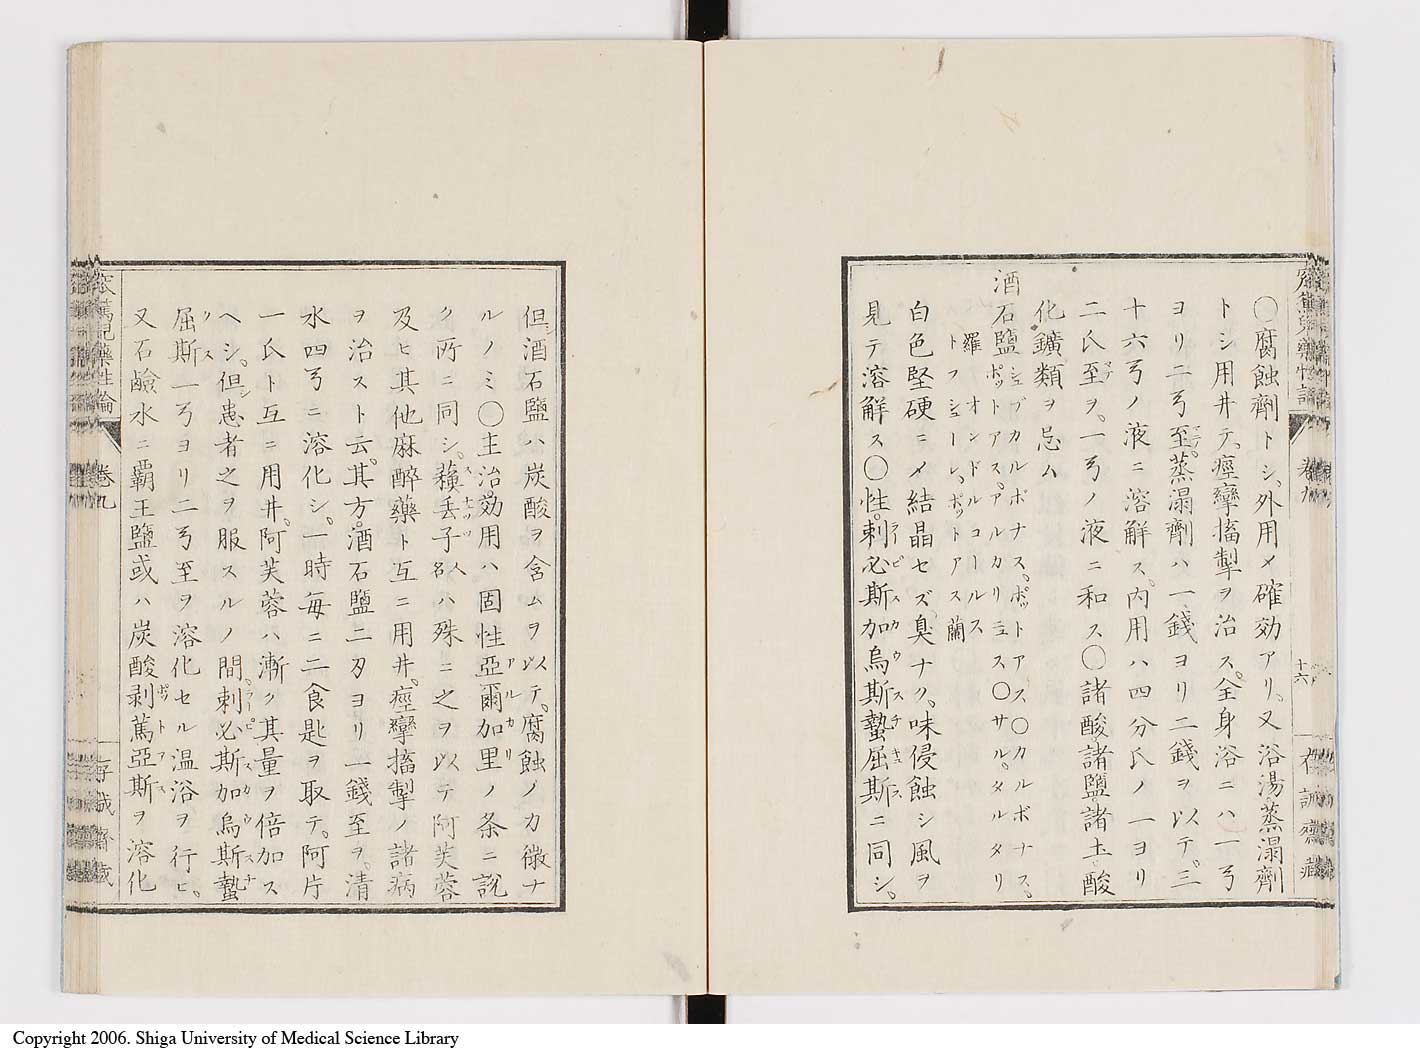 〇腐蝕劑トシ、外用メ確効アリ、又浴湯蒸溻劑
トシ用井テ、痙攣搐掣ヲ治ス、全身浴ニハ一弓
ヨリ二弓至、蒸溻劑ハ一錢ヨリ二錢ヲ以テ、三
十六弓ノ液ニ溶解ス、内用ハ四分氏ノ一ヨリ
二氏至ヲ、一弓ノ液ニ和ス〇諸酸諸鹽諸土酸
化鑛類ヲ忌ム
酒石鹽 シュブカルボナス、ポットアス〇カルボナス、
ポットアス、アルカリニュス〇サル、タルタリ
羅 オンドルコールス
トフシューレ、ポットアス 蘭
白色堅硬ニメ結晶セズ、臭ナク、味侵蝕シ風ヲ
見テ溶解ス〇性、刺必斯加烏斯蟄屈斯ニ同シ、
卷九
十六
存誠齋藏
但シ酒石鹽ハ炭酸ヲ含ムヲ以テ、腐蝕ノ力微ナ
ルノミ〇主治効用ハ固性亞爾加里ノ条ニ説
ク所ニ同シ、蘓丢子人名ハ殊ニ之ヲ以テ阿芙蓉
及ヒ其他麻醉藥ト互ニ用井、痙攣搐掣ノ諸病
ヲ治スト云、其方、酒石鹽二刄ヨリ一錢至ヲ、清
水四弓ニ溶化シ、一時每ニ二食匙ヲ取テ、阿片
一氏ト互ニ用井、阿芙蓉ハ漸ク其量ヲ倍加ス
ヘシ、但シ患者之ヲ服スルノ間、刺必斯加烏斯蟄
屈斯一弓ヨリ二弓至ヲ溶化セル温浴ヲ行ヒ、
又石鹼水ニ覇王鹽或ハ炭酸剥篤亞斯ヲ溶化
窊篤兒藥性論
卷九
存誠齋藏
Copyright 2006. Shiga University of Medical Science Library